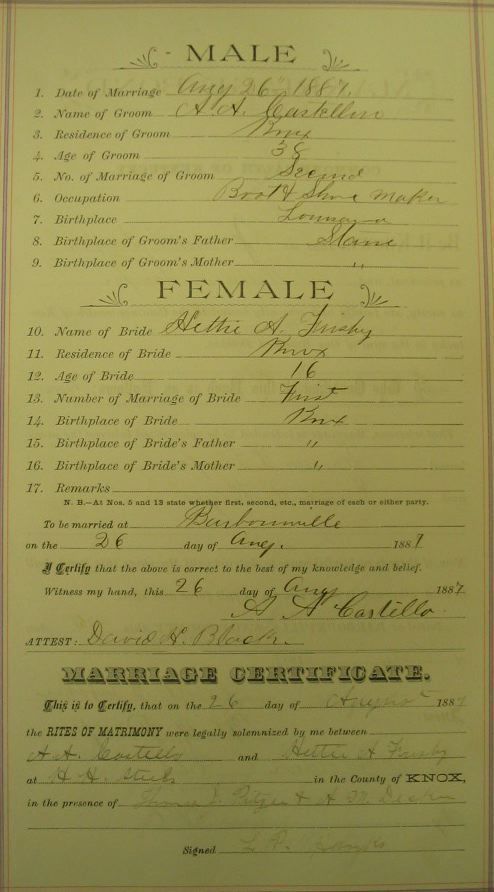 MALE
1. Date of Marriage Aug 26" 1887.
2. Name of Groom A. A. Castellin
3. Residence of Groom Knox
4. Age of Groom 38
5. No. of Marriage of Groom Second
6. Occupation Boot & Shoe Maker
7. Birthplace
8. Birthplace of Groom's Father Same
9. Birthplace of Groom's Mother "
FEMALE
10. Name of Bride Hettie A. Frisby
11. Residence of Bride Knox
12. Age of Bride 16
13. Number of Marriage of Bride First
14. Birthplace of Bride Knox
15. Birthplace of Bride's Father "
16. Birthplace of Bride's Mother "
17. Remarks
N. B.—At Nos. 5 and 13 state whether first, second, etc., marriage of each or either party.
To be married at Barbourville
on the 26 day of Aug. 1887
I Certify that the above is correct to the best of my knowledge and belief.
Witness my hand, this 26 day of Aug 1887
A A Castello
ATTEST: David H. Black
MARRIAGE CERTIFICATE.
This is to Certify, that on the 26 day of August 1887
the RITES OF MATRIMONY were legally solemnized by me between
A A. Costello and Hettie A Frisby
at H. H. in the County of KNOX,
in the presence of Thomas J. & A
Signed L